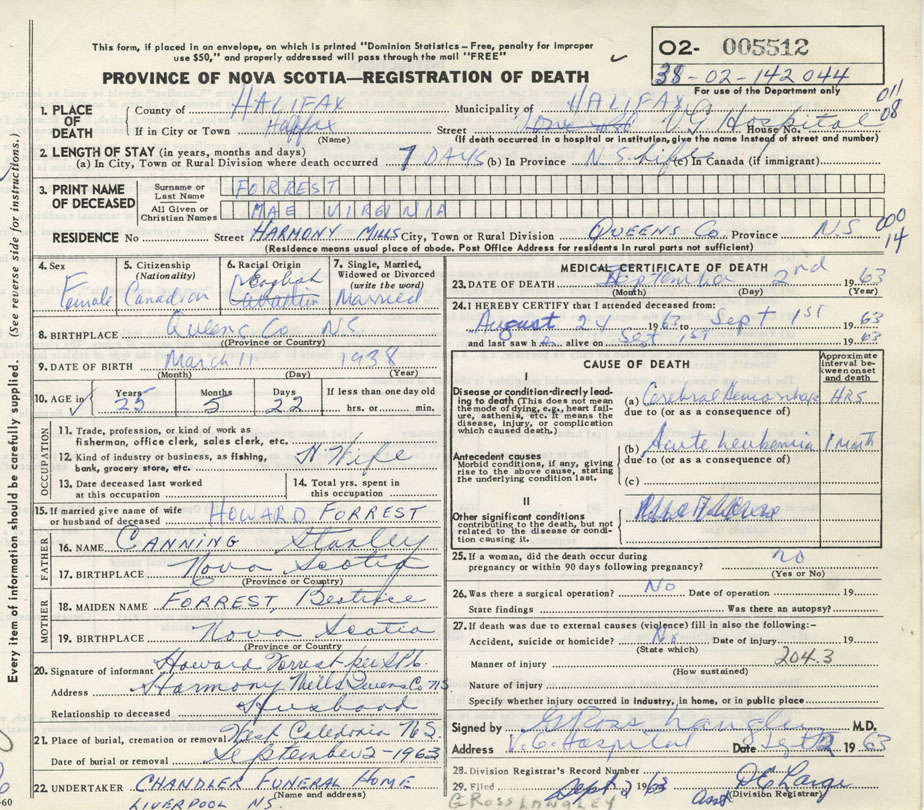 This form, if placed in an envelope, on which is printed "Dominion Statistics – Free, penalty for improper
use $50," and properly addressed will pass through the mail "FREE"
PROVINCE OF NOVA SCOTIA—REGISTRATION OF DEATH
02- 005512
38-02-142044
For use of the Department only
011
08
1. PLACE OF DEATH
County of HALIFAX Municipality of HALIFAX
If in City or Town Halifax (Name) Street V.G. Hospital House No.
(If death occurred in a hospital or institution, give the name instead of street and number)
2. LENGTH OF STAY (in years, months and days)
(a) In City, Town or Rural Division where death occurred 7 DAYS (b) In Province N.S. Life (c) In Canada (if immigrant)
3. PRINT NAME OF DECEASED
Surname or Last Name FORREST
All Given or Christian Names MAE VIRGINIA
RESIDENCE No Street HARMONY MILLS City, Town or Rural Division QUEENS CO. Province N.S
(Residence means usual place of abode. Post Office Address for residents in rural parts not sufficient)
000
14
Every item of information should be carefully supplied. (See reverse side for instructions.)
4. Sex Female
5. Citizenship (Nationality) Canadian
6. Racial Origin English Canadian
7. Single, Married, Widowed or Divorced (write the word) Married
8. BIRTHPLACE Queens Co NS
(Province or Country)
9. DATE OF BIRTH March 11 1938
(Month) (Day) (Year)
10. AGE in Years 25 Months 5 Days 22 If less than one day old hrs. or min.
OCCUPATION
11. Trade, profession, or kind of work as
fisherman, office clerk, sales clerk, etc.
12. Kind of industry or business, as fishing,
bank, grocery store, etc. H Wife
13. Date deceased last worked
at this occupation
14. Total yrs. spent in
this occupation
15. If married give name of wife
or husband of deceased HOWARD FORREST
FATHER
16. NAME CANNING Stanley
17. BIRTHPLACE Nova Scotia
(Province or Country)
MOTHER
18. MAIDEN NAME FORREST, Beatrice
19. BIRTHPLACE Nova Scotia
(Province or Country)
20. Signature of informant Howard Forrest per
Address Harmony Mills Queens Co NS
Relationship to deceased Husband
21. Place of burial, cremation or removal West Caledonia N.S.
Date of burial or removal September 2-1963
22. UNDERTAKER CHANDLER FUNERAL HOME
(Name and address)
LIVERPOOL NS
60
MEDICAL CERTIFICATE OF DEATH
23. DATE OF DEATH September 2nd 1963
(Month) (Day) (Year)
24. I HEREBY CERTIFY that I attended deceased from:
August 24 1963 to Sept 1st 1963
and last saw h alive on Sept 1st 1963
CAUSE OF DEATH
Approximate interval between onset and death
I
Disease or condition directly leading to death (This does not mean the mode of dying, e.g., heart failure, asthenia, etc. It means the disease, injury, or complication which caused death.)
(a) Cerebral Hemorrhage HRS
due to (or as a consequence of)
Antecedent causes
Morbid conditions, if any, giving rise to the above cause, stating the underlying condition last.
(b) Acute leukemia 1 Month
due to (or as a consequence of)
(c)
II
Other significant conditions
contributing to the death, but not related to the disease or condition causing it.
25. If a woman, did the death occur during
pregnancy or within 90 days following pregnancy? no
(Yes or No)
26. Was there a surgical operation? No Date of operation 19
State findings Was there an autopsy?
27. If death was due to external causes (violence) fill in also the following:–
Accident, suicide or homicide? No Date of injury 19
(State which)
204.3
Manner of injury
(How sustained)
Nature of injury
Specify whether injury occurred in industry, in home, or in public place
Signed by G Ross Langley M.D.
Address V.G. Hospital Date Sept 2 1963
28. Division Registrar's Record Number
29. Filed Sept 2 1963
(Division Registrar)
G ROSS LANGLEY
Asst